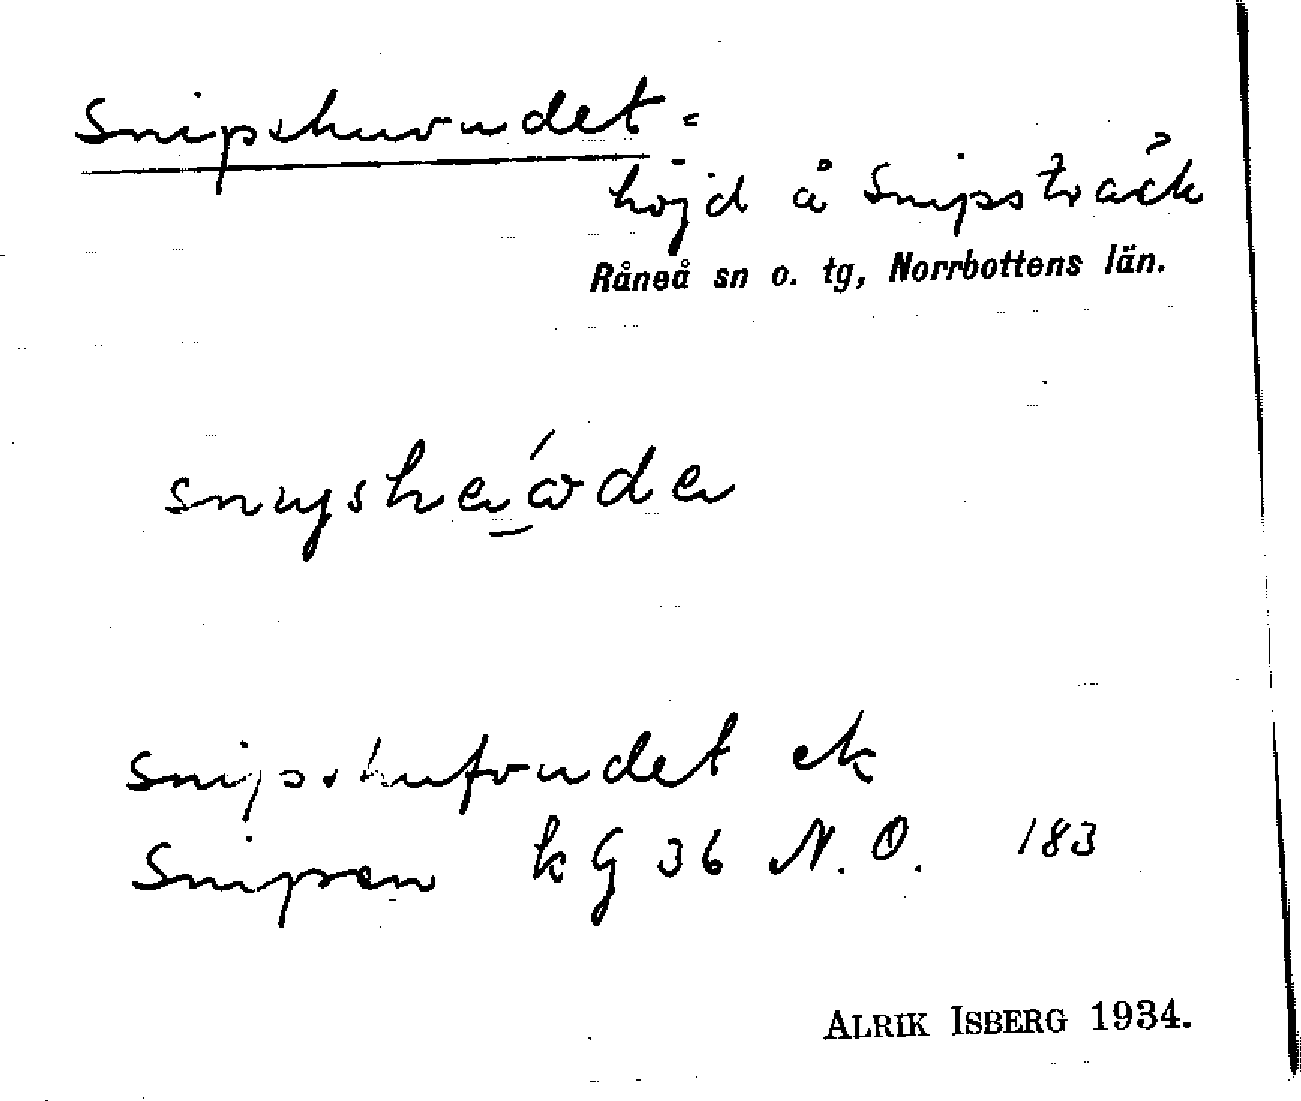 Snipshuvudet =
höjd å Snipsträsk
Råneå sn o. tg, Norrbottens län.
Snipshufvudet ek
Snipen kG 36 N.O. 183
ALRIK ISBERG 1934.